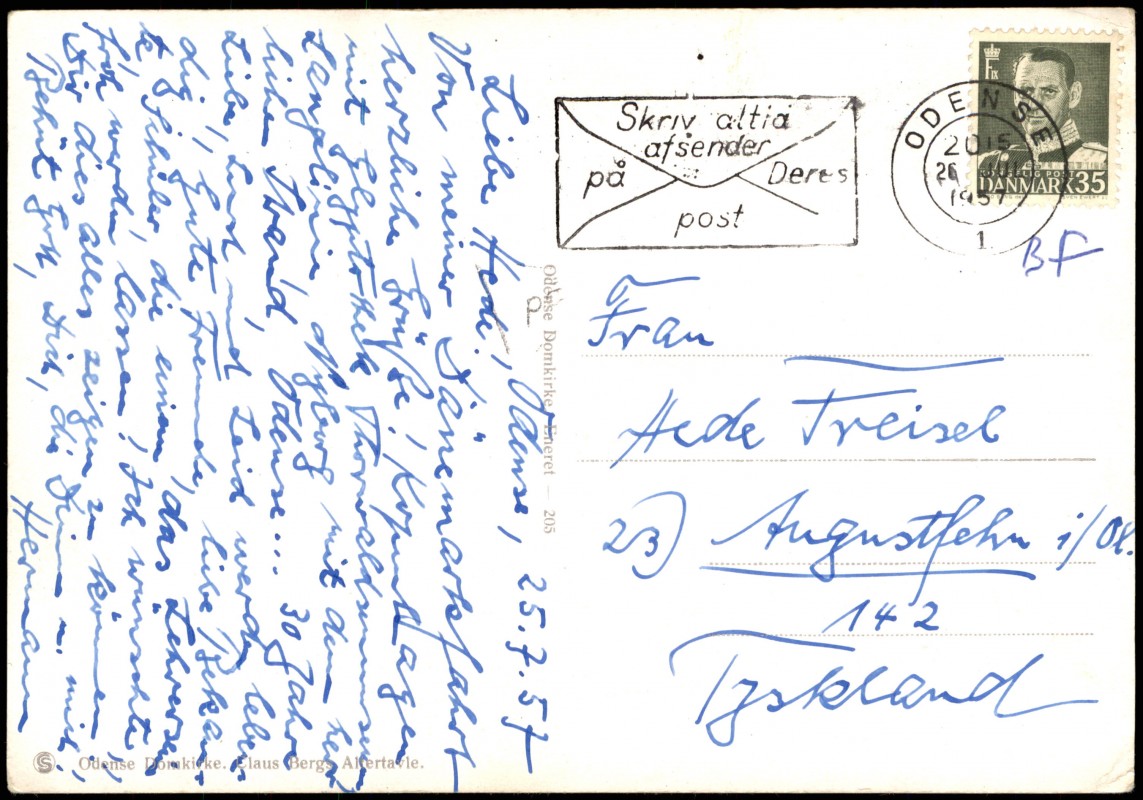 Odense, 25.7.57
Liebe Hede!
Von meiner Dänemarkfahrt
herzliche Grüße! Kopenhagen
mit Glyptothek, Thorwaldsenmuseum
Langelinie, mit dem herr
lichen Strand, Odense... 30 Jahre
Liebe, Lust und Leid werden leben
dig, gute Freunde, liebe Bekann
te, Schüler, die einem das Lehrersein
froh werden lassen! Ich wünschte
Dir dies alles zeigen zu können!
Behüt Gott, Dich, die Deinen u. mich,
Hermann
Odense Domkirke. Claus Bergs Altertavle.
Odense Domkirke Eneret - 205
Skriv altid
afsender
på Deres
post
ODENSE
2015
26
1957
1
F IX
KONGELIG POST
DANMARK 35
BF
Frau
Hede Treisel
23) Augustfehn i/Ol.
142
Tyskland